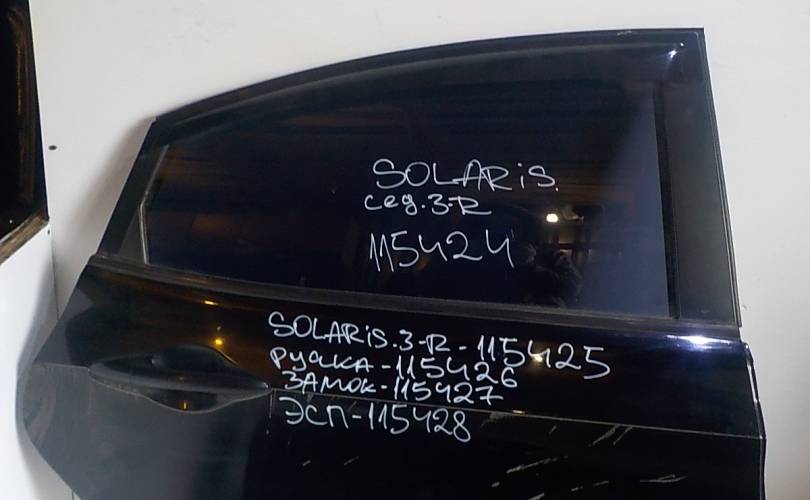 SOLARiS.
сед.3-R
115424
SOLARiS.3-R-115425
РУЧКА-115426
ЗАМОК-115427
ЭСП-115428